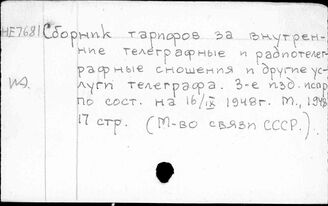 HE7681 Сборник тарифов за внутрен-
ние телеграфные и радиотелег-
рафные сношения и другие ус-
луги телеграфа. 3-е изд. испр
по сост. на 16/IX 1948г. М., 1948
17 стр. (М-во связи СССР.).